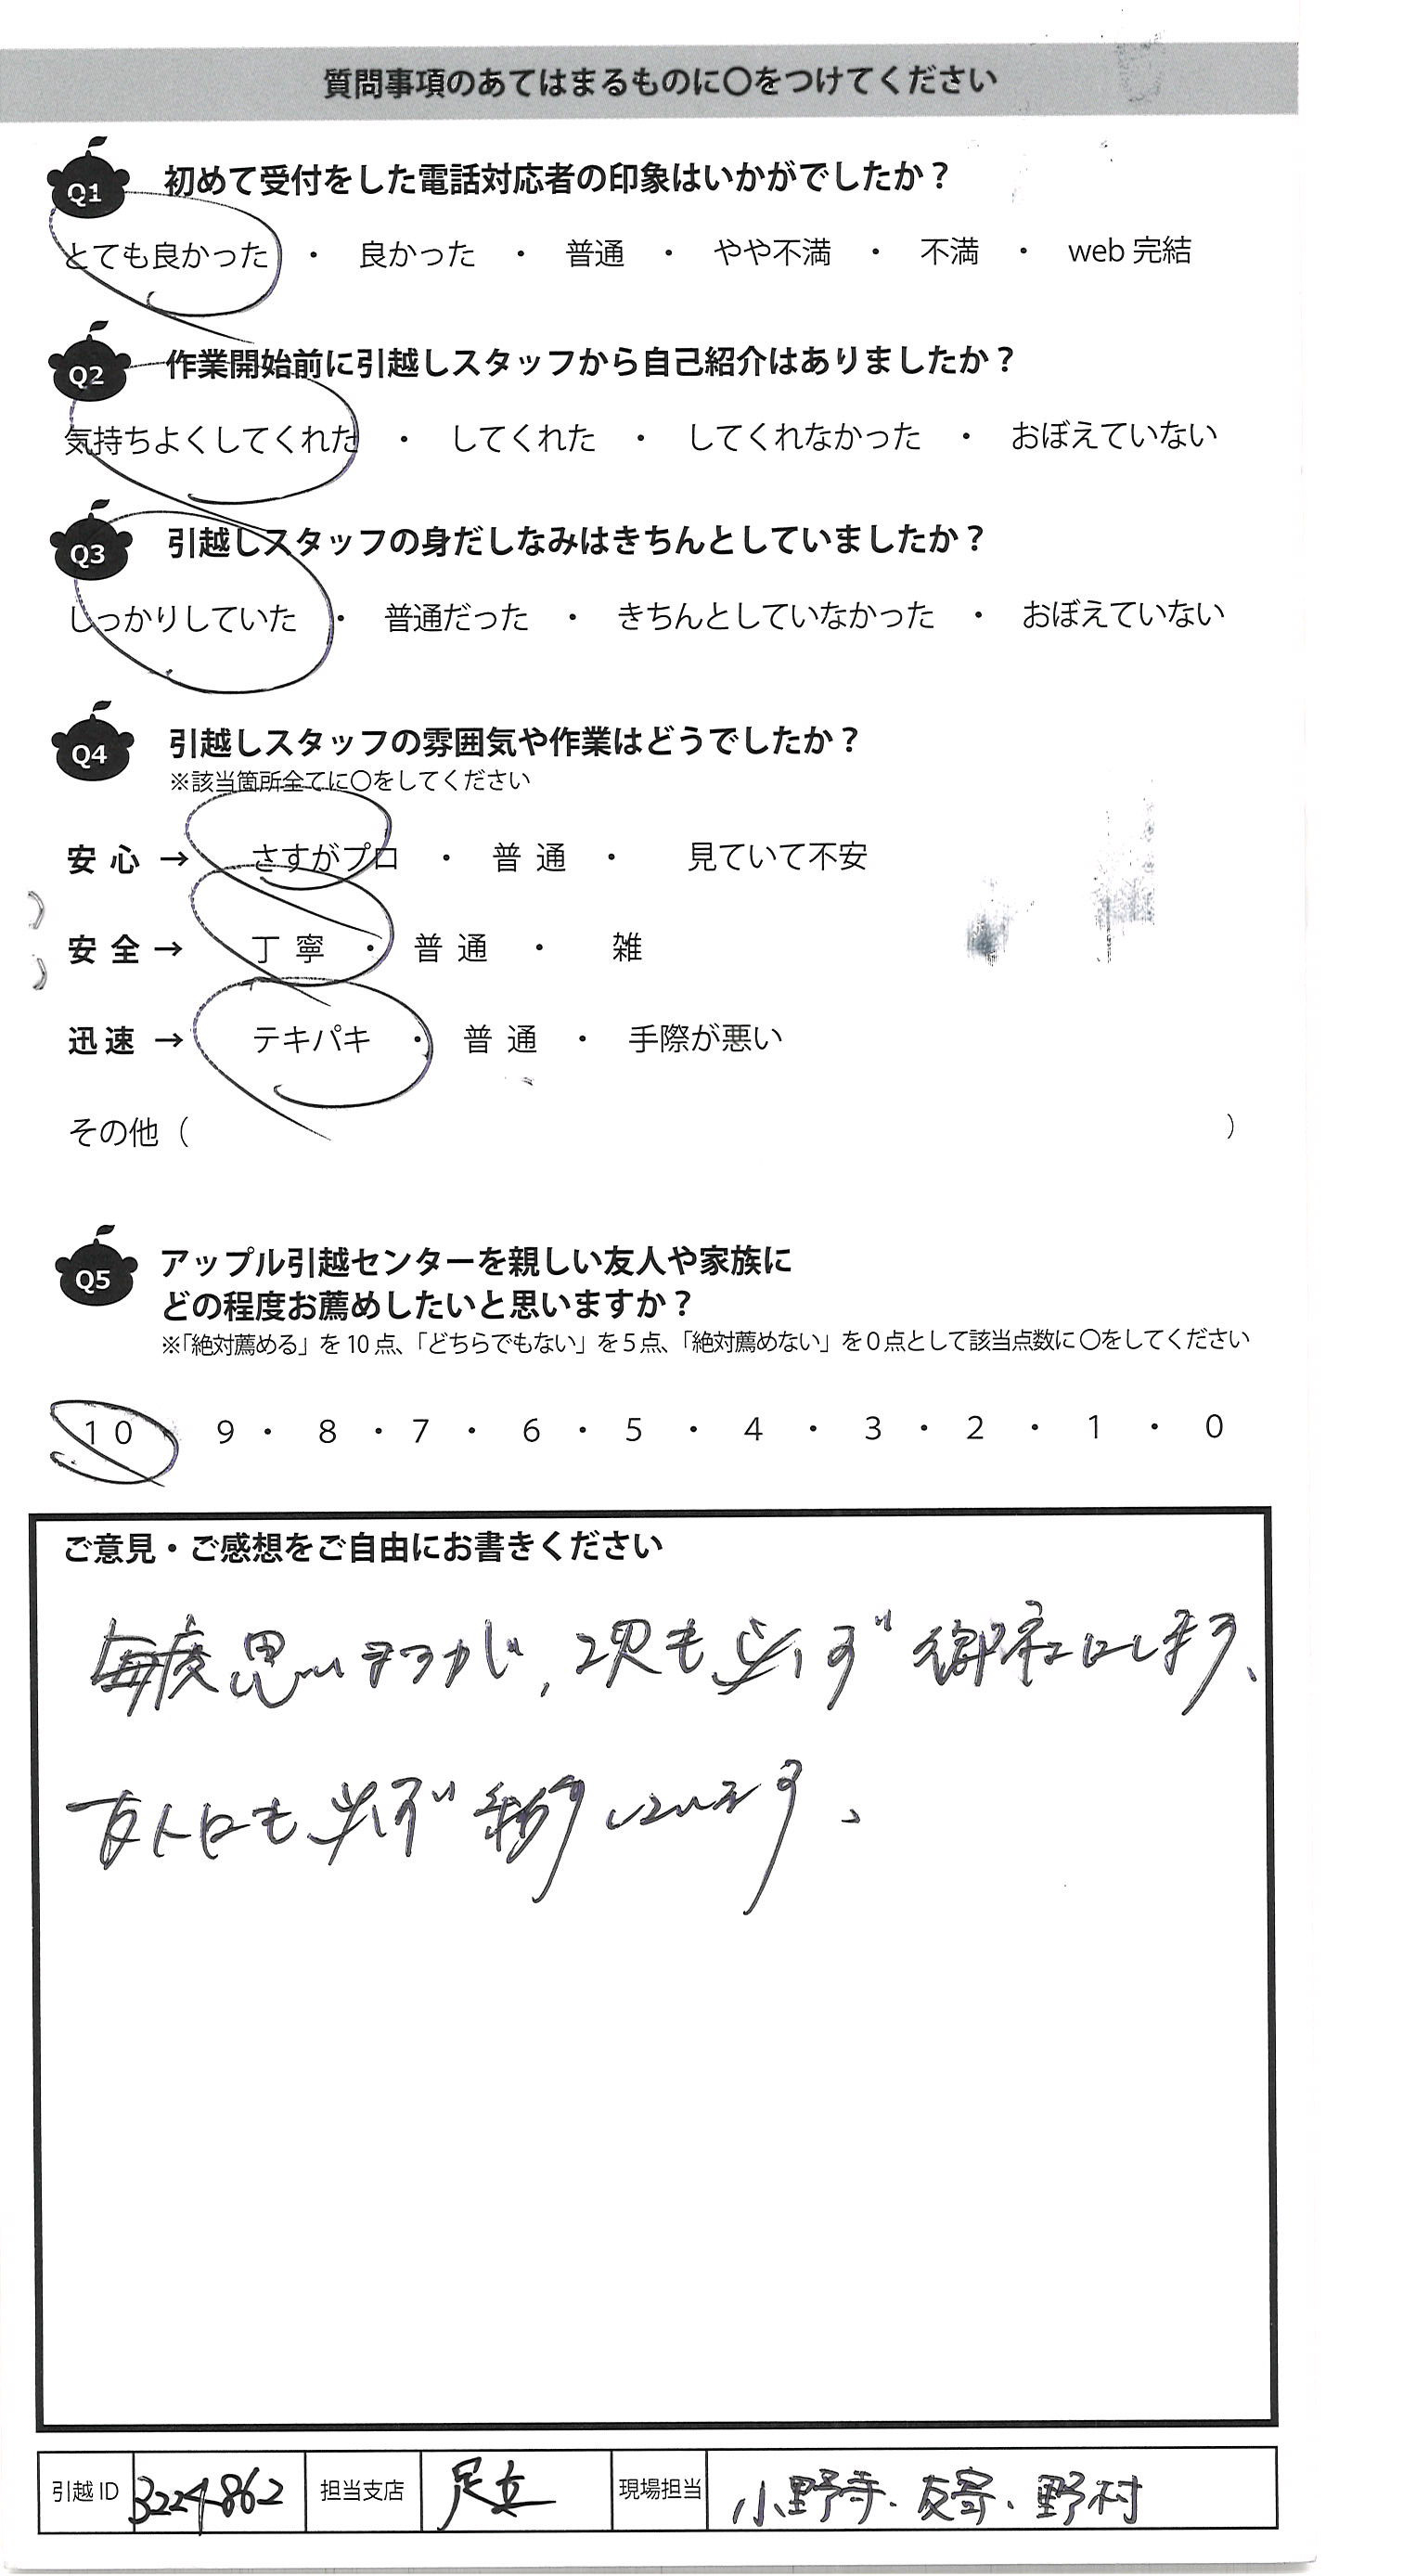 質問事項のあてはまるものに〇をつけてください
Q1 初めて受付をした電話対応者の印象はいかがでしたか？
とても良かった ・ 良かった ・ 普通 ・ やや不満 ・ 不満 ・ web 完結
Q2 作業開始前に引越しスタッフから自己紹介はありましたか？
気持ちよくしてくれた ・ してくれた ・ してくれなかった ・ おぼえていない
Q3 引越しスタッフの身だしなみはきちんとしていましたか？
しっかりしていた ・ 普通だった ・ きちんとしていなかった ・ おぼえていない
Q4 引越しスタッフの雰囲気や作業はどうでしたか？
※該当箇所全てに〇をしてください
安 心 → さすがプロ ・ 普 通 ・ 見ていて不安
安 全 → 丁 寧 ・ 普 通 ・ 雑
迅 速 → テキパキ ・ 普 通 ・ 手際が悪い
その他（ ）
Q5 アップル引越センターを親しい友人や家族に
どの程度お薦めしたいと思いますか？
※「絶対薦める」を 10 点、「どちらでもない」を 5 点、「絶対薦めない」を 0 点として該当点数に 〇をしてください
10 9 ・ 8 ・ 7 ・ 6 ・ 5 ・ 4 ・ 3 ・ 2 ・ 1 ・ 0
ご意見・ご感想をご自由にお書きください
毎度思いますが、次も必ず御社にします、
友人にも必ず しています、
引越 ID 3224862 担当支店 足立 現場担当 小野寺・友寄・野村